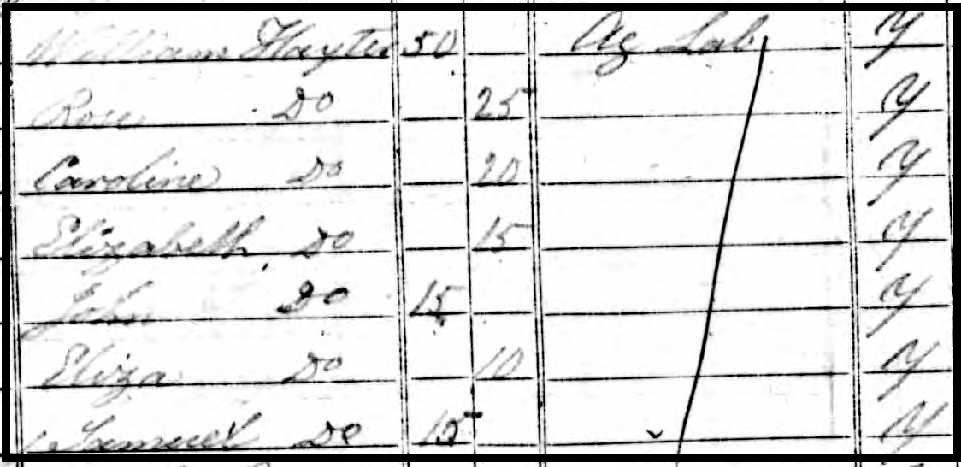 William Hayter 50 Ag Lab Y
Rose Do 25 Y
Caroline Do 20 Y
Elizabeth Do 15 Y
John Do 15 Y
Eliza Do 10 Y
Samuel Do 15 Y